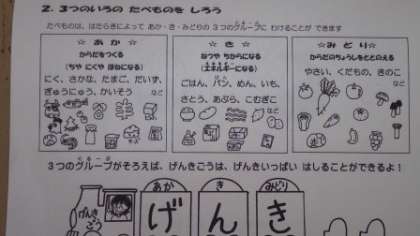 2. 3つのいろの たべものを しろう
たべものは、はたらきによって あか・き・みどりの 3つのグループに わけることが できます
☆あか☆
からだをつくる
(ちや にくや ほねになる)
にく、さかな、たまご、だいず、
ぎゅうにゅう、かいそう
など
☆き☆
ねつや ちからになる
(エネルギーになる)
ごはん、パン、めん、いも、
さとう、あぶら、こむぎこ
など
☆みどり☆
からだのちょうしをととのえる
やさい、くだもの、きのこ
など
3つのグループがそろえば、げんきごうは、げんきいっぱい はしることができるよ!
あか
き
みどり
げんき
げ
ん
き